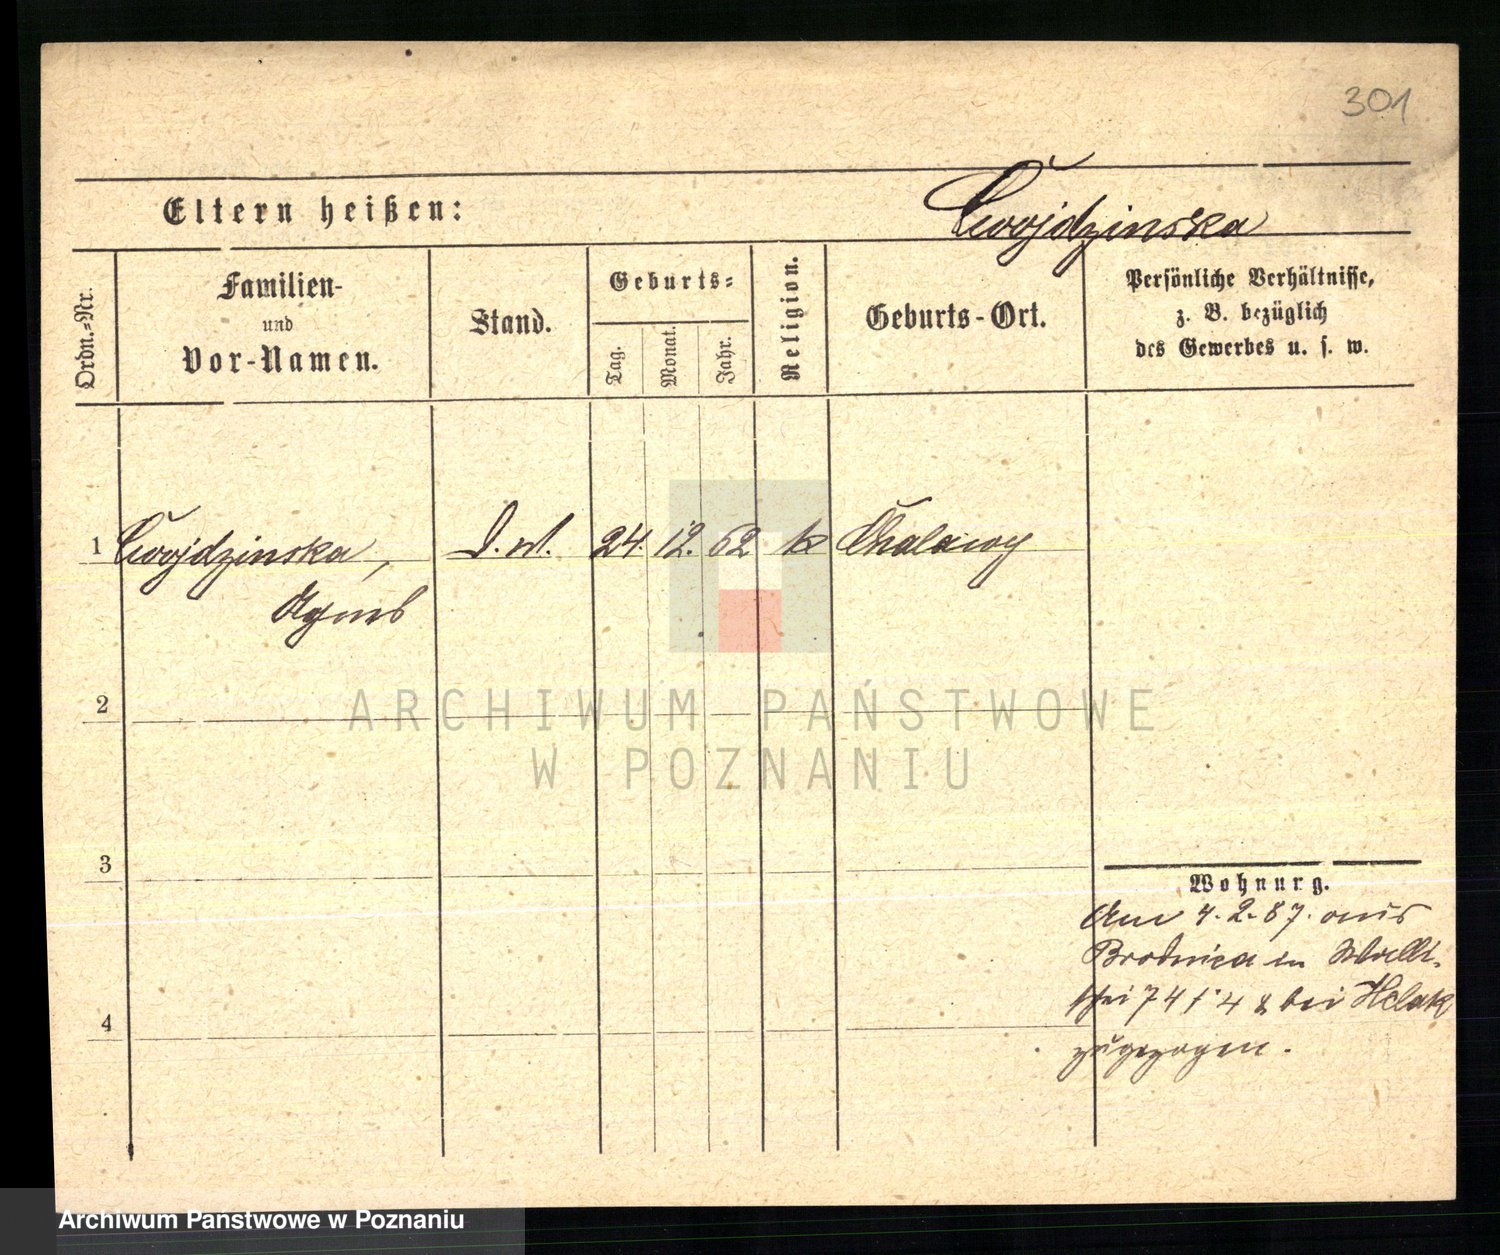 301
Eltern heißen:
Cwojdzinska
Ordn.-Nr.
Familien-
und
Vor-Namen.
Stand.
Geburts-
Tag.
Monat.
Jahr.
Religion.
Geburts-Ort.
Persönliche Verhältnisse,
z. B. bezüglich
des Gewerbes u. s. w.
1 Cwojdzinska, 24. 12. 62 k Chalawy
Agnes
2
ARCHIWUM PAŃSTWOWE
W POZNANIU
3
Wohnung.
Am 4. 2. 87. aus
Brodnica in
74 bei
4
zugezogen.
Archiwum Państwowe w Poznaniu